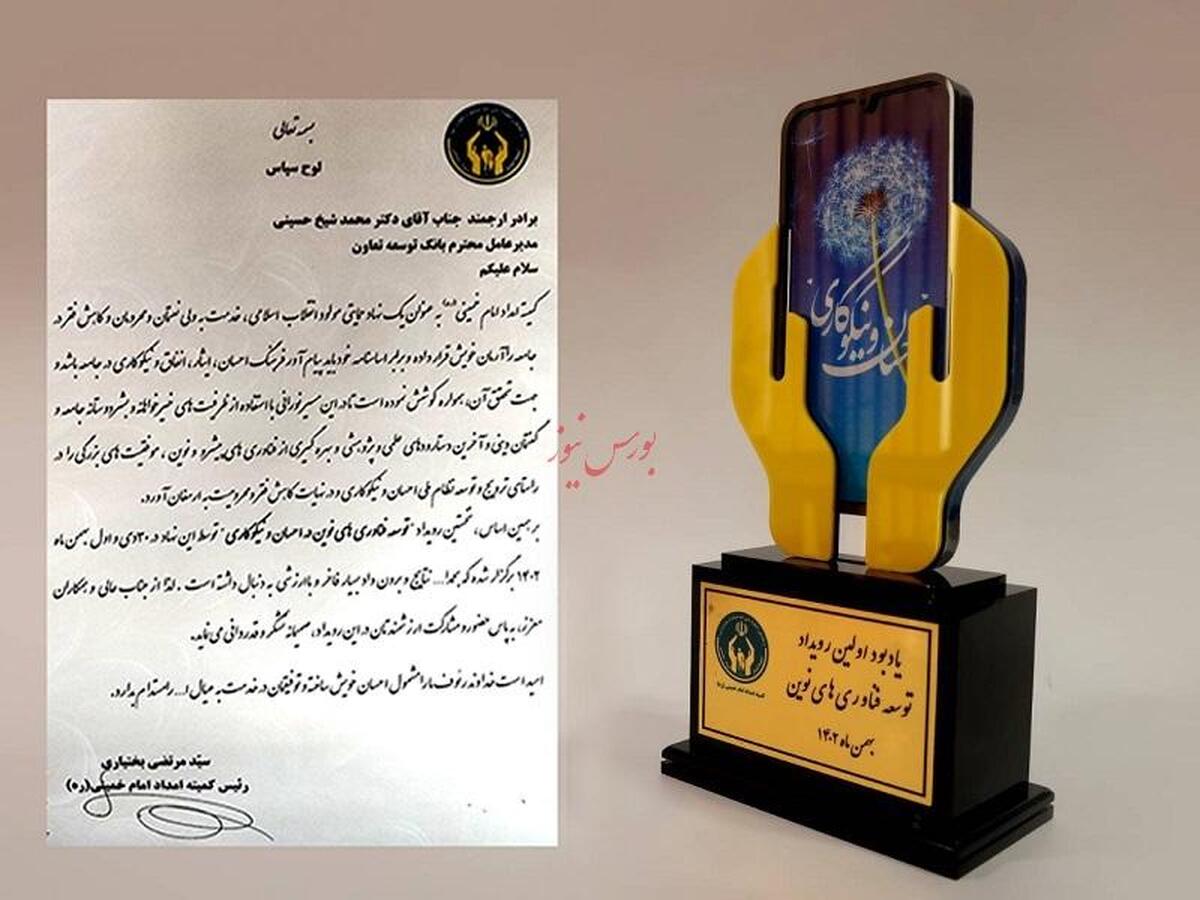 بسمه تعالی
لوح سپاس
برادر ارجمند جناب آقای دکتر محمد شیخ حسینی
مدیرعامل محترم بانک توسعه تعاون
سلام علیکم
کمیته امداد امام خمینی (ره) به عنوان یک نهاد حمایتی مولود انقلاب اسلامی، خدمت به ولی نعمتان و محرومان و کاهش فقر در
جامعه را آرمان خویش قرار داده و برابر اساسنامه خود باید پیام آور فرهنگ احسان، ایثار، انفاق و نیکوکاری در جامعه باشد و
جهت تحقق آن، همواره کوشش نموده است تا در این مسیر نورانی با استفاده از ظرفیت های خیرخواهانه و بشردوستانه جامعه و
گفتمان دینی و آخرین دستاوردهای علمی و پژوهشی و بهره گیری از فناوری های پیشرو و نوین، موفقیت های بزرگی را در
راستای ترویج و توسعه نظام ملی احسان و نیکوکاری و در نهایت کاهش فقر و محرومیت به ارمغان آورد.
بر همین اساس، نخستین رویداد "توسعه فناوری های نوین در احسان و نیکوکاری" توسط این نهاد در ۳۰ دی و اول بهمن ماه
۱۴۰۲ برگزار شده که بحمدا... نتایج و برون داد بسیار فاخر و باارزشی به دنبال داشته است. لذا از جناب عالی و همکاران
معزز، به پاس حضور و مشارکت ارزشمندتان در این رویداد، صمیمانه تشکر و قدردانی می نماید.
امید است خداوند رئوف ما را مشمول احسان خویش ساخته و توفیقتان در خدمت به عیال ا... را مستدام بدارد.
سیّد مرتضی بختیاری
رئیس کمیته امداد امام خمینی(ره)
بورس نیوز
ونیکوکاری
یادبود اولین رویداد
توسعه فناوری های نوین
بهمن ماه ۱۴۰۲
کمیته امداد امام خمینی (ره)